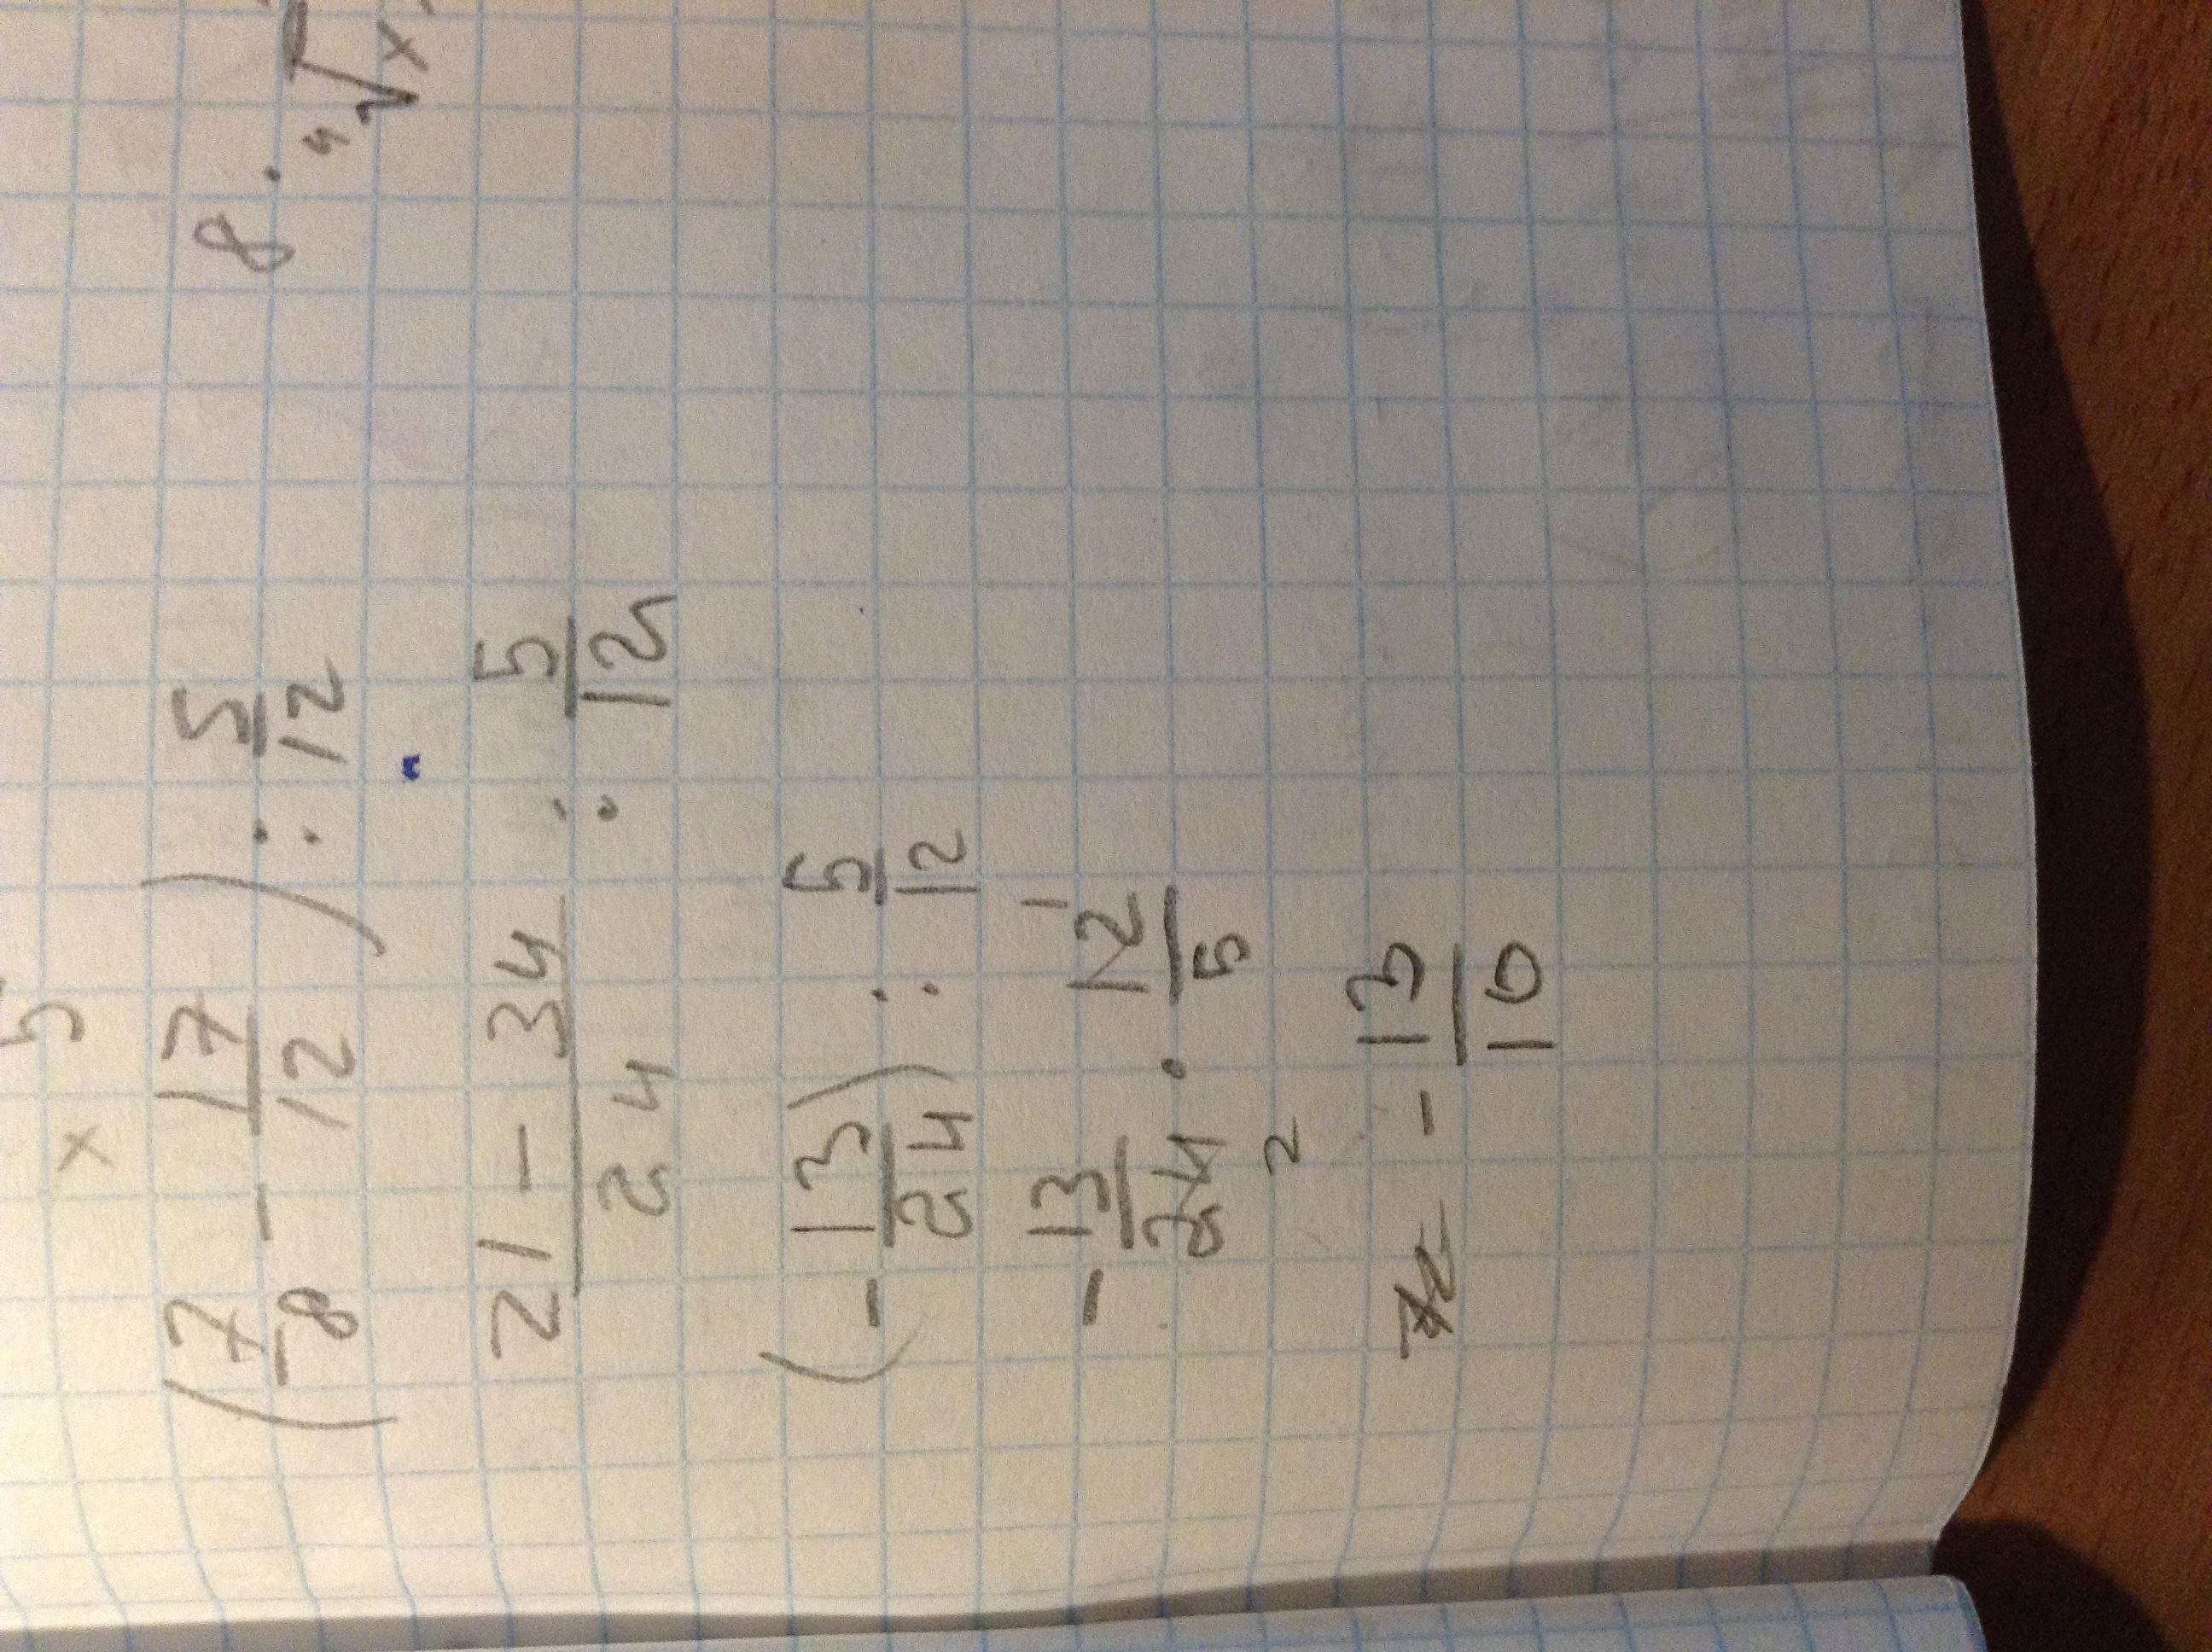 8 · ⁴√x
x 5
(7/8 - 17/12) : 5/12
21 - 34/24 : 5/12
(-13/24) : 5/12
-13/24 · 12/5
2 1
- 13/10